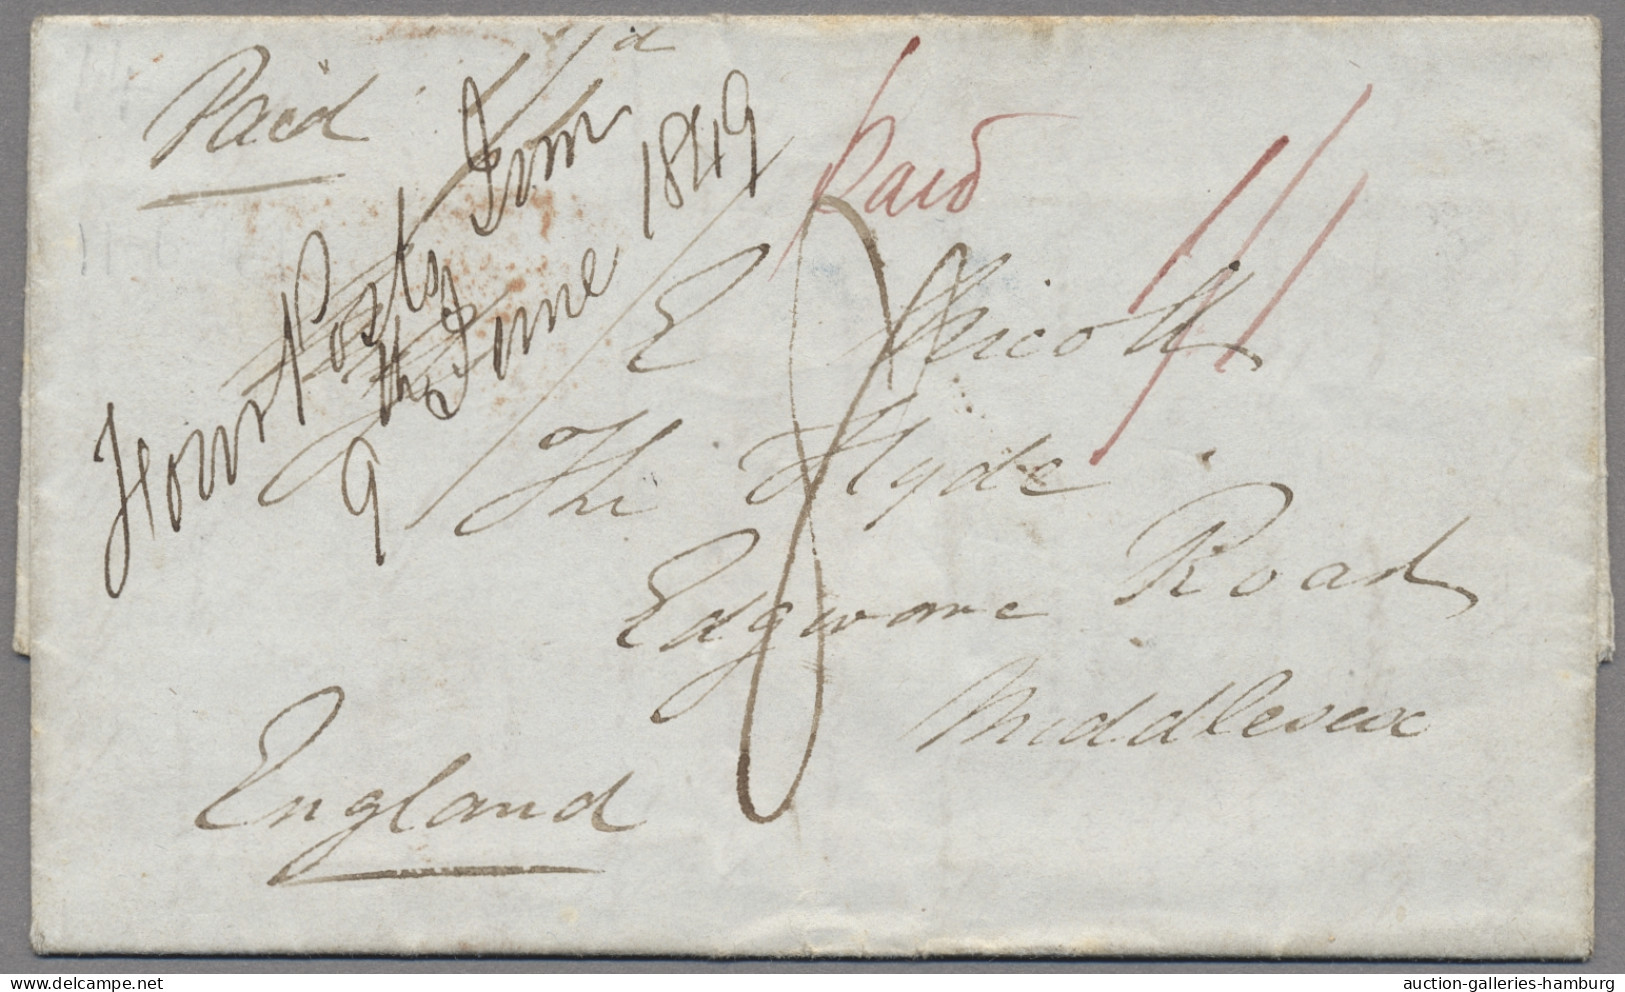 Paid 1/d
Paid 1/1
Four Posts from
9th June 1849
E Nicoll
The Hyde
Edgware Road
Middlesex
England
8
auction-galleries-hamburg